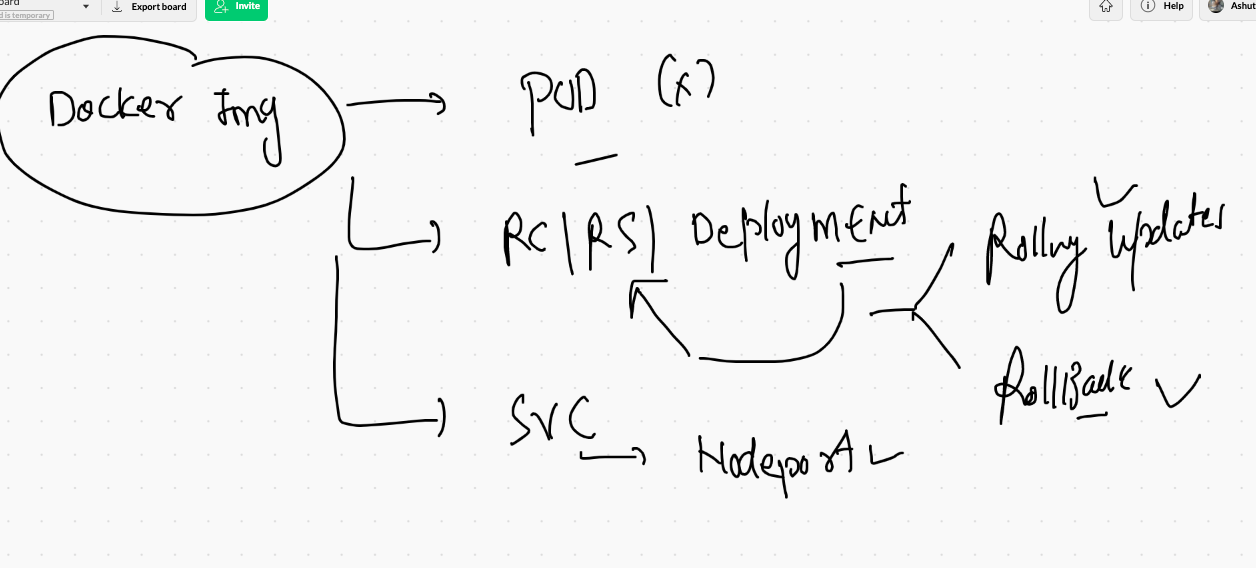 oard
d is temporary
Export board
Invite
Help
Ashut
Docker Img
POD (x)
RC|RS| Deployment
Rolling Updates
RollBack
SVC
Nodeport